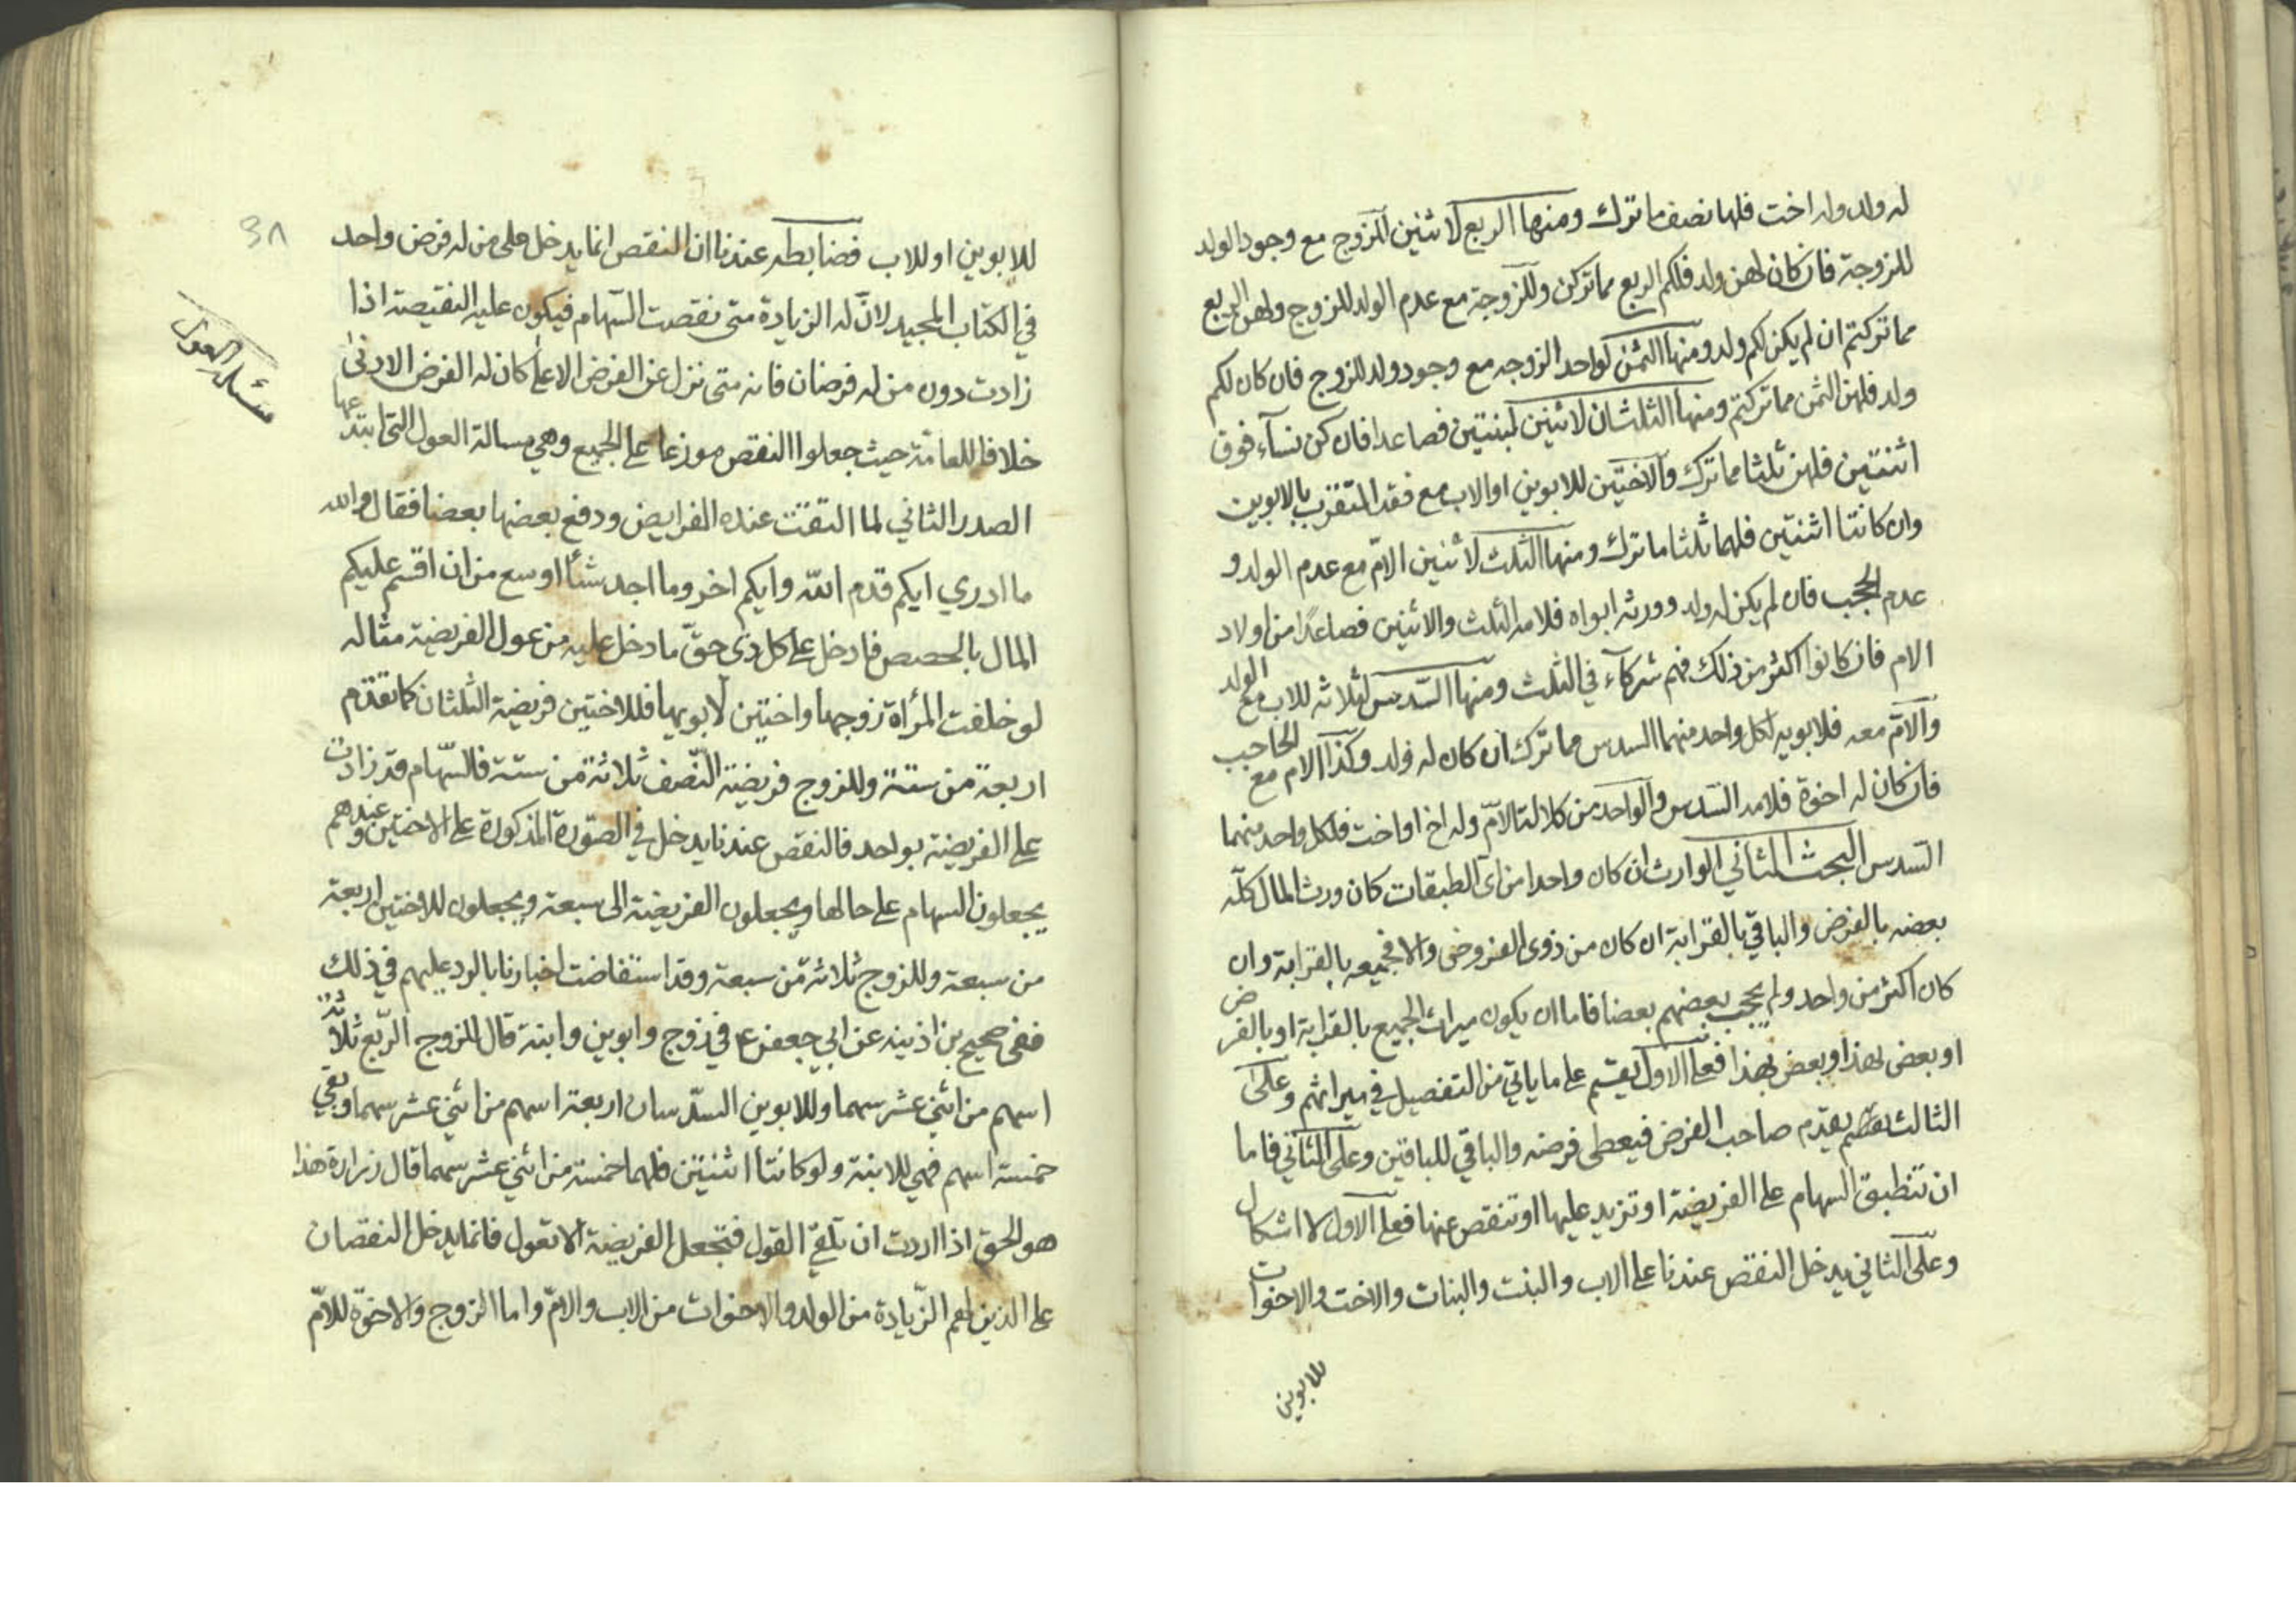 له ولد وله اخت فلها نصف ما ترك ومنها الربع لاثنين للزوج مع وجود الولد
للزوجة فان كان لهن ولد فلكم الربع مما تركن وللزوجة مع عدم الولد للزوج ولهن الربع
مما تركتم ان لم يكن لكم ولد ومنها الثمن لواحد الزوجه مع وجود ولد للزوج فان كان لكم
ولد فلهن الثمن مما تركتم ومنها الثلثان لاثنين لبنتين فصاعدا فان كن نسآء فوق
اثنتين فلهن ثلثا مما ترك والاختين للابوين او الاب مع فقد المتقرب بالابوين
وان كانتا اثنتين فلهما ثلثا ما ترك ومنها الثلث لاثنين الام مع عدم الولد و
عدم الحجب فان لم يكن له ولد وورثه ابواه فلامه الثلث والاثنين فصاعدا من اولاد
الام فان كانوا اكثر من ذلك فهم شركآء في الثلث ومنها السدس لثلاثه للاب مع الولد
والام معه فلابويه لكل واحد منهما السدس مما ترك ان كان له ولد وكذا الام مع الحاجب
فان كان له اخوة فلامه السدس والواحد من كلالة الام وله اخ او اخت فلكل واحد منهما
السدس البحث الثاني الوارث ان كان واحدا من اى الطبقات كان ورث المال كله
بعضه بالفرض والباقي بالقرابة ان كان من ذوى الفروض والا فجميعه بالقرابة وان
كان اكثر من واحد ولم يحجب بعضهم بعضا فاما ان يكون ميراث الجميع بالقرابة او بالفرض
او بعض بهذا وبعض بهذا فعلى الاول يقسم على ما ياتي من التفصيل في ميراثهم وعلى
الثالث يقدم صاحب الفرض فيعطى فرضه والباقي للباقين وعلى الثاني فاما
ان تنطبق السهام على الفريضة او تزيد عليها او تنقص عنها فعلى الاول لا اشكال
وعلى الثاني يدخل النقص عندنا على الاب والبنت والبنات والاخت والاخوات
للابوين
للابوين او للاب فضابطه عندنا ان النقص انما يدخل على من له فرض واحد
في الكتاب المجيد لان له الزيادة متى نقصت السهام فيكون عليه النقيصة اذا
زادت دون من له فرضان فانه متى نزل عن الفرض الاعلى كان له الفرض الادنى
خلافا للعامة حيث جعلوا النقص موزعا على الجميع وهي مسالة العول التي ابتدعها
الصدر الثاني لما التفت عنده الفرايض ودفع بعضها بعضا فقال والله
ما ادري ايكم قدم الله وايكم اخر وما اجد شئا اوسع من ان اقسم عليكم
المال بالحصص فادخل على كل ذى حق ما دخل عليه من عول الفريضة مثاله
لو خلفت المرأة زوجها واختين لابويها فللاختين فريضة الثلثان كما تقدم
اربعة من ستة وللزوج فريضة النصف ثلاثة من ستة فالسهام قد زادت
على الفريضة بواحد فالنقص عندنا يدخل في الصورة المذكورة على الاختين وعندهم
يجعلون السهام على حالها ويجعلون الفريضة الى سبعة ويجعلون للاختين اربعة
من سبعة وللزوج ثلاثة من سبعة وقد استفاضت اخبارنا بالرد عليهم في ذلك
ففي صحيح بن اذينه عن ابي جعفر ع في زوج وابوين وابنة قال للزوج الربع ثلاثة
اسهم من اثني عشر سهما وللابوين السدسان اربعة اسهم من اثني عشر سهما وبقي
خمسة اسهم فهي للابنة ولو كانتا اثنتين فلهما خمسة من اثني عشر سهما قال زرارة هذا
هو الحق اذا اردت ان تلقي القول فتجعل الفريضة لا تعول فانما يدخل النقصان
على الذين لهم الزيادة من الولد والاخوات من الاب والام واما الزوج والاخوة للام
مسئلة العول